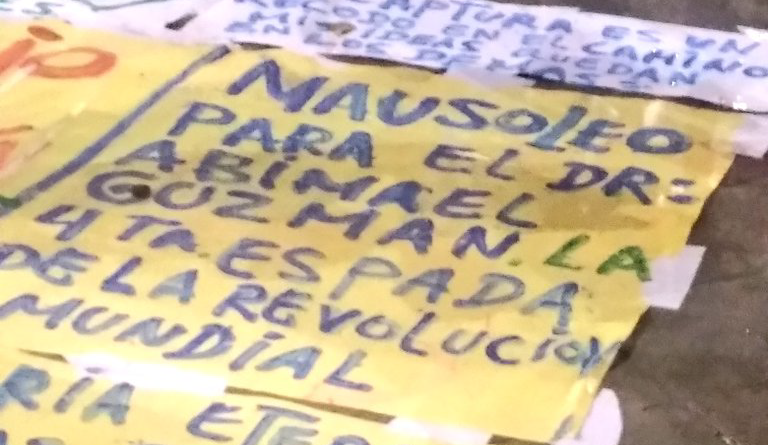 CAPTURA ES UN
RECODO EN EL CAMINO
MIS IDEAS QUEDAN
MAUSOLEO
PARA EL DR:
ABIMAEL
GUZMAN. LA
4 Ta. ESPADA
DE LA REVOLUCION
MUNDIAL
RIA ETER